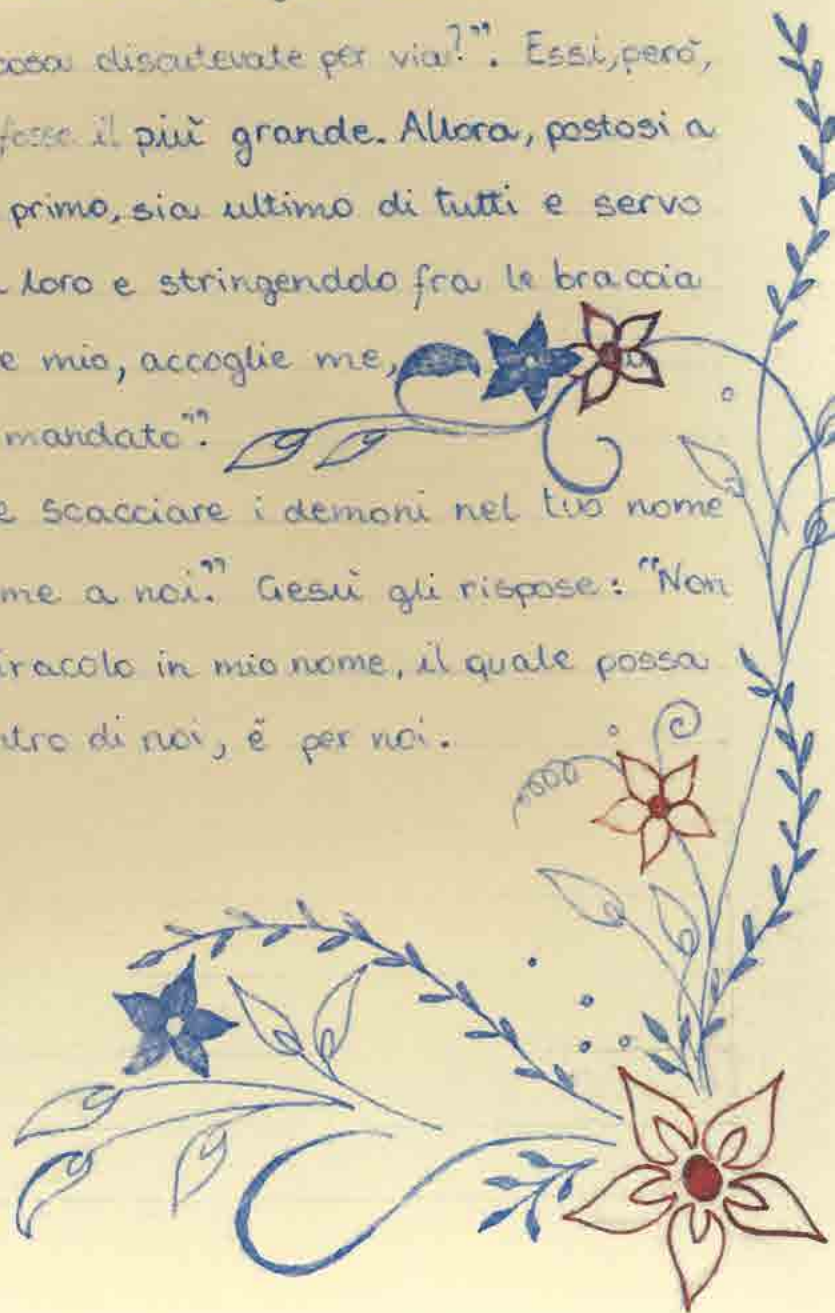 cosa discutevate per via?". Essi, però,
fosse il più grande. Allora, postosi a
primo, sia ultimo di tutti e servo
loro e stringendolo fra le braccia
mio, accoglie me,
mandato".
scacciare i demoni nel tuo nome
a noi." Gesù gli rispose: "Non
in mio nome, il quale possa
di noi, è per noi.